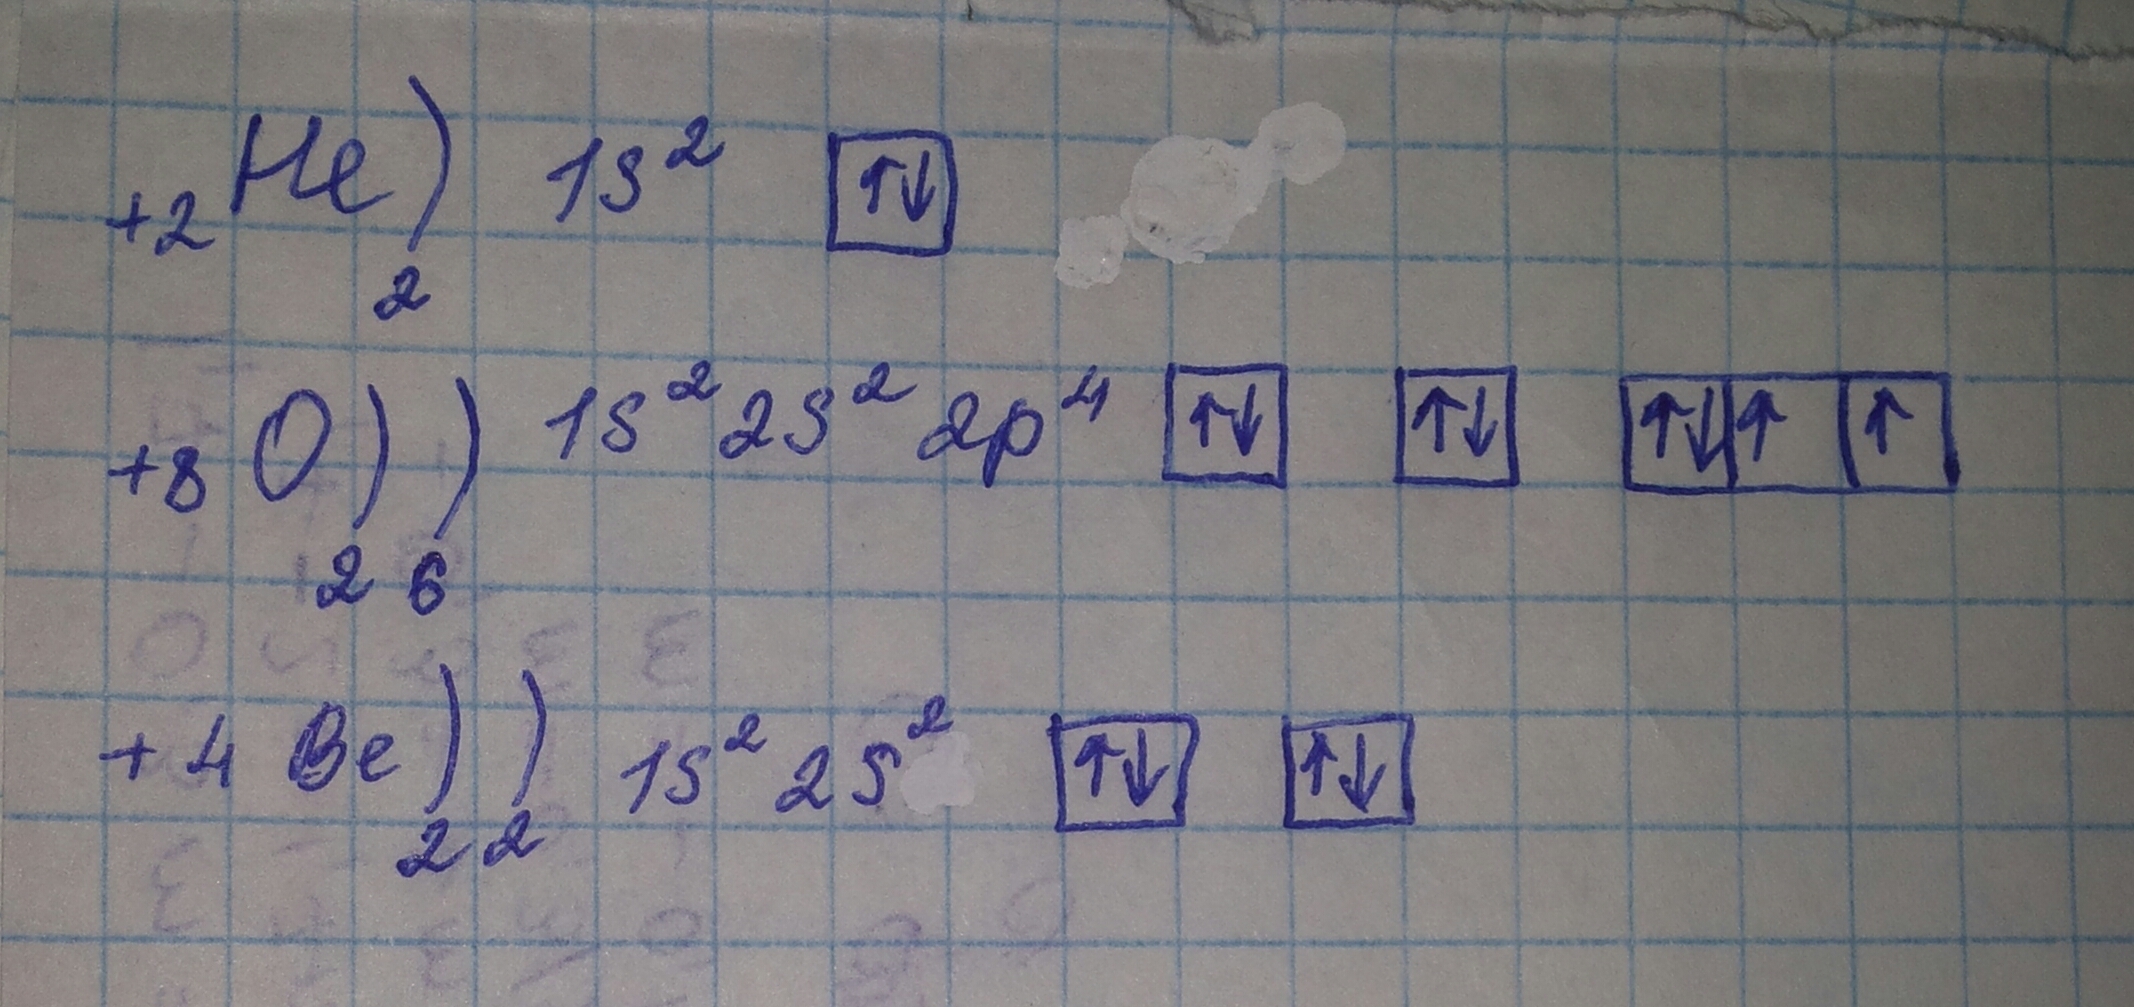 +2 He) 1s² ↑↓
2
+8 O)) 1s² 2s² 2p⁴ ↑↓ ↑↓ ↑↓ ↑ ↑
2 6
+4 Be)) 1s² 2s² ↑↓ ↑↓
2 2